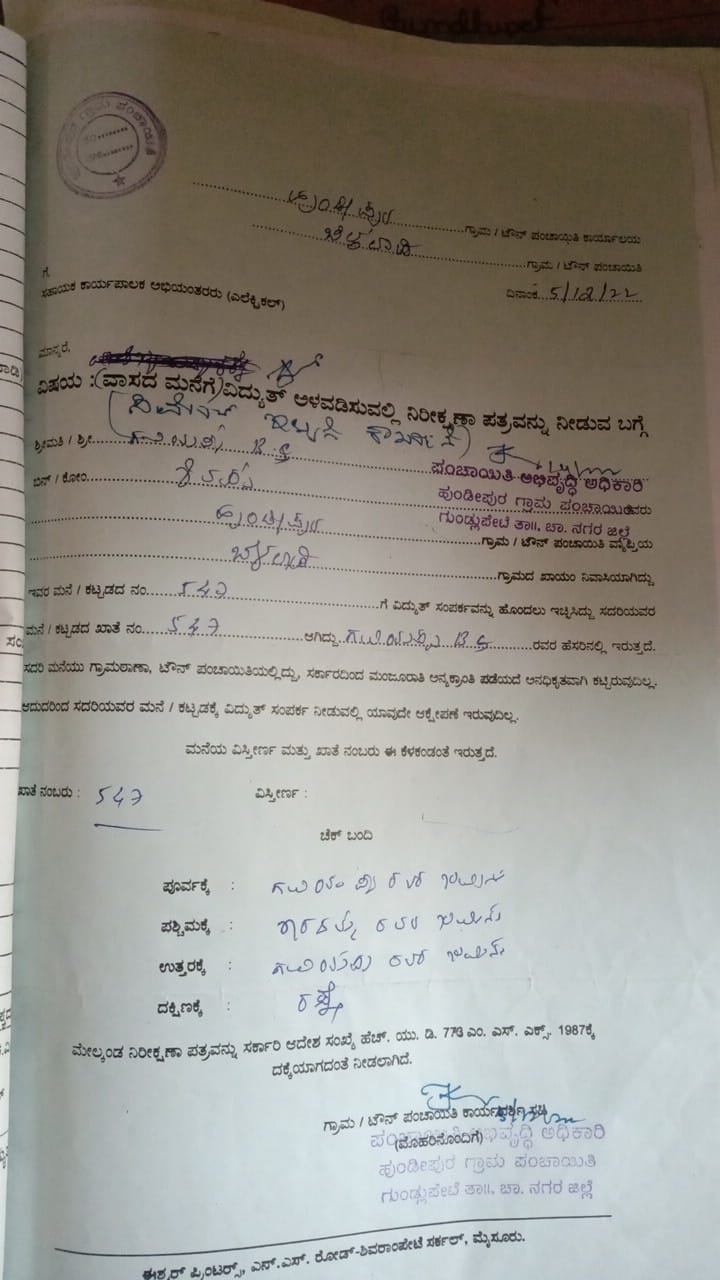 ಗ್ರಾಮ ಪಂಚಾಯಿತಿ
ಹುಂಡೀಪುರ ಗ್ರಾಮ / ಟೌನ್ ಪಂಚಾಯಿತಿ ಕಾರ್ಯಾಲಯ
ಗ್ರಾಮ / ಟೌನ್ ಪಂಚಾಯಿತಿ
ಗೆ,
ದಿನಾಂಕ 5/12/22
ಸಹಾಯಕ ಕಾರ್ಯಪಾಲಕ ಅಭಿಯಂತರರು (ಎಲೆಕ್ಟ್ರಿಕಲ್)
ಮಾನ್ಯರೆ,
ವಿಷಯ : (ವಾಸದ ಮನೆಗೆ) ವಿದ್ಯುತ್ ಅಳವಡಿಸುವಲ್ಲಿ ನಿರೀಕ್ಷಣಾ ಪತ್ರವನ್ನು ನೀಡುವ ಬಗ್ಗೆ
ಶ್ರೀಮತಿ / ಶ್ರೀ
ಪಂಚಾಯಿತಿ ಅಭಿವೃದ್ಧಿ ಅಧಿಕಾರಿ
ಬಿನ್ / ಕೋಂ ರವರು
ಹುಂಡೀಪುರ ಗ್ರಾಮ ಪಂಚಾಯಿತಿ
ಗುಂಡ್ಲುಪೇಟೆ ತಾ॥, ಚಾ. ನಗರ ಜಿಲ್ಲೆ
ಹುಂಡೀಪುರ ಗ್ರಾಮ / ಟೌನ್ ಪಂಚಾಯಿತಿ ವ್ಯಾಪ್ತಿಯ
ಗ್ರಾಮದ ಖಾಯಂ ನಿವಾಸಿಯಾಗಿದ್ದು
ಇವರ ಮನೆ / ಕಟ್ಟಡದ ನಂ. 547 ಗೆ ವಿದ್ಯುತ್ ಸಂಪರ್ಕವನ್ನು ಹೊಂದಲು ಇಚ್ಛಿಸಿದ್ದು ಸದರಿಯವರ
ಮನೆ / ಕಟ್ಟಡದ ಖಾತೆ ನಂ. 547 ಆಗಿದ್ದು ರವರ ಹೆಸರಿನಲ್ಲಿ ಇರುತ್ತದೆ.
ಸದರಿ ಮನೆಯು ಗ್ರಾಮಠಾಣಾ, ಟೌನ್ ಪಂಚಾಯಿತಿಯಲ್ಲಿದ್ದು, ಸರ್ಕಾರದಿಂದ ಮಂಜೂರಾತಿ ಅನ್ಯಕ್ರಾಂತಿ ಪಡೆಯದೆ ಅನಧಿಕೃತವಾಗಿ ಕಟ್ಟಿರುವುದಿಲ್ಲ.
ಆದುದರಿಂದ ಸದರಿಯವರ ಮನೆ / ಕಟ್ಟಡಕ್ಕೆ ವಿದ್ಯುತ್ ಸಂಪರ್ಕ ನೀಡುವಲ್ಲಿ ಯಾವುದೇ ಆಕ್ಷೇಪಣೆ ಇರುವುದಿಲ್ಲ.
ಮನೆಯ ವಿಸ್ತೀರ್ಣ ಮತ್ತು ಖಾತೆ ನಂಬರು ಈ ಕೆಳಕಂಡಂತೆ ಇರುತ್ತದೆ.
ಖಾತೆ ನಂಬರು : 547 ವಿಸ್ತೀರ್ಣ :
ಚೆಕ್ ಬಂದಿ
ಪೂರ್ವಕ್ಕೆ : ಜಮೀನು
ಪಶ್ಚಿಮಕ್ಕೆ : ಜಮೀನು
ಉತ್ತರಕ್ಕೆ : ಜಮೀನು
ದಕ್ಷಿಣಕ್ಕೆ : ರಸ್ತೆ
ಮೇಲ್ಕಂಡ ನಿರೀಕ್ಷಣಾ ಪತ್ರವನ್ನು ಸರ್ಕಾರಿ ಆದೇಶ ಸಂಖ್ಯೆ ಹೆಚ್. ಯು. ಡಿ. 773 ಎಂ. ಎಸ್. ಎಕ್ಸ್. 1987ಕ್ಕೆ
ದಕ್ಕೆಯಾಗದಂತೆ ನೀಡಲಾಗಿದೆ.
ಗ್ರಾಮ / ಟೌನ್ ಪಂಚಾಯಿತಿ ಕಾರ್ಯದರ್ಶಿ ಸಹಿ
(ಮೊಹರಿನೊಂದಿಗೆ)
ಪಂಚಾಯಿತಿ ಅಭಿವೃದ್ಧಿ ಅಧಿಕಾರಿ
ಹುಂಡೀಪುರ ಗ್ರಾಮ ಪಂಚಾಯಿತಿ
ಗುಂಡ್ಲುಪೇಟೆ ತಾ॥, ಚಾ. ನಗರ ಜಿಲ್ಲೆ
ಈಶ್ವರ್ ಪ್ರಿಂಟರ್ಸ್, ಎನ್.ಎಸ್. ರೋಡ್-ಶಿವರಾಂಪೇಟೆ ಸರ್ಕಲ್, ಮೈಸೂರು.